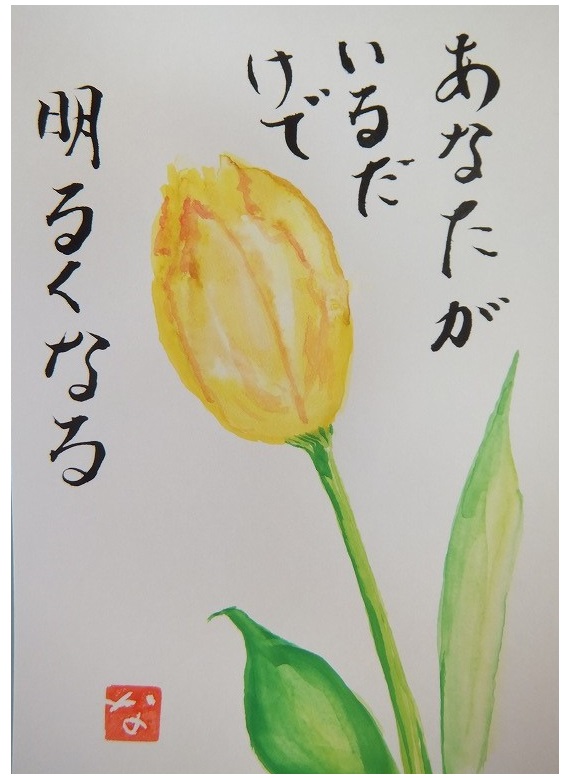 あなたが
いるだ
けで
明るくなる
な